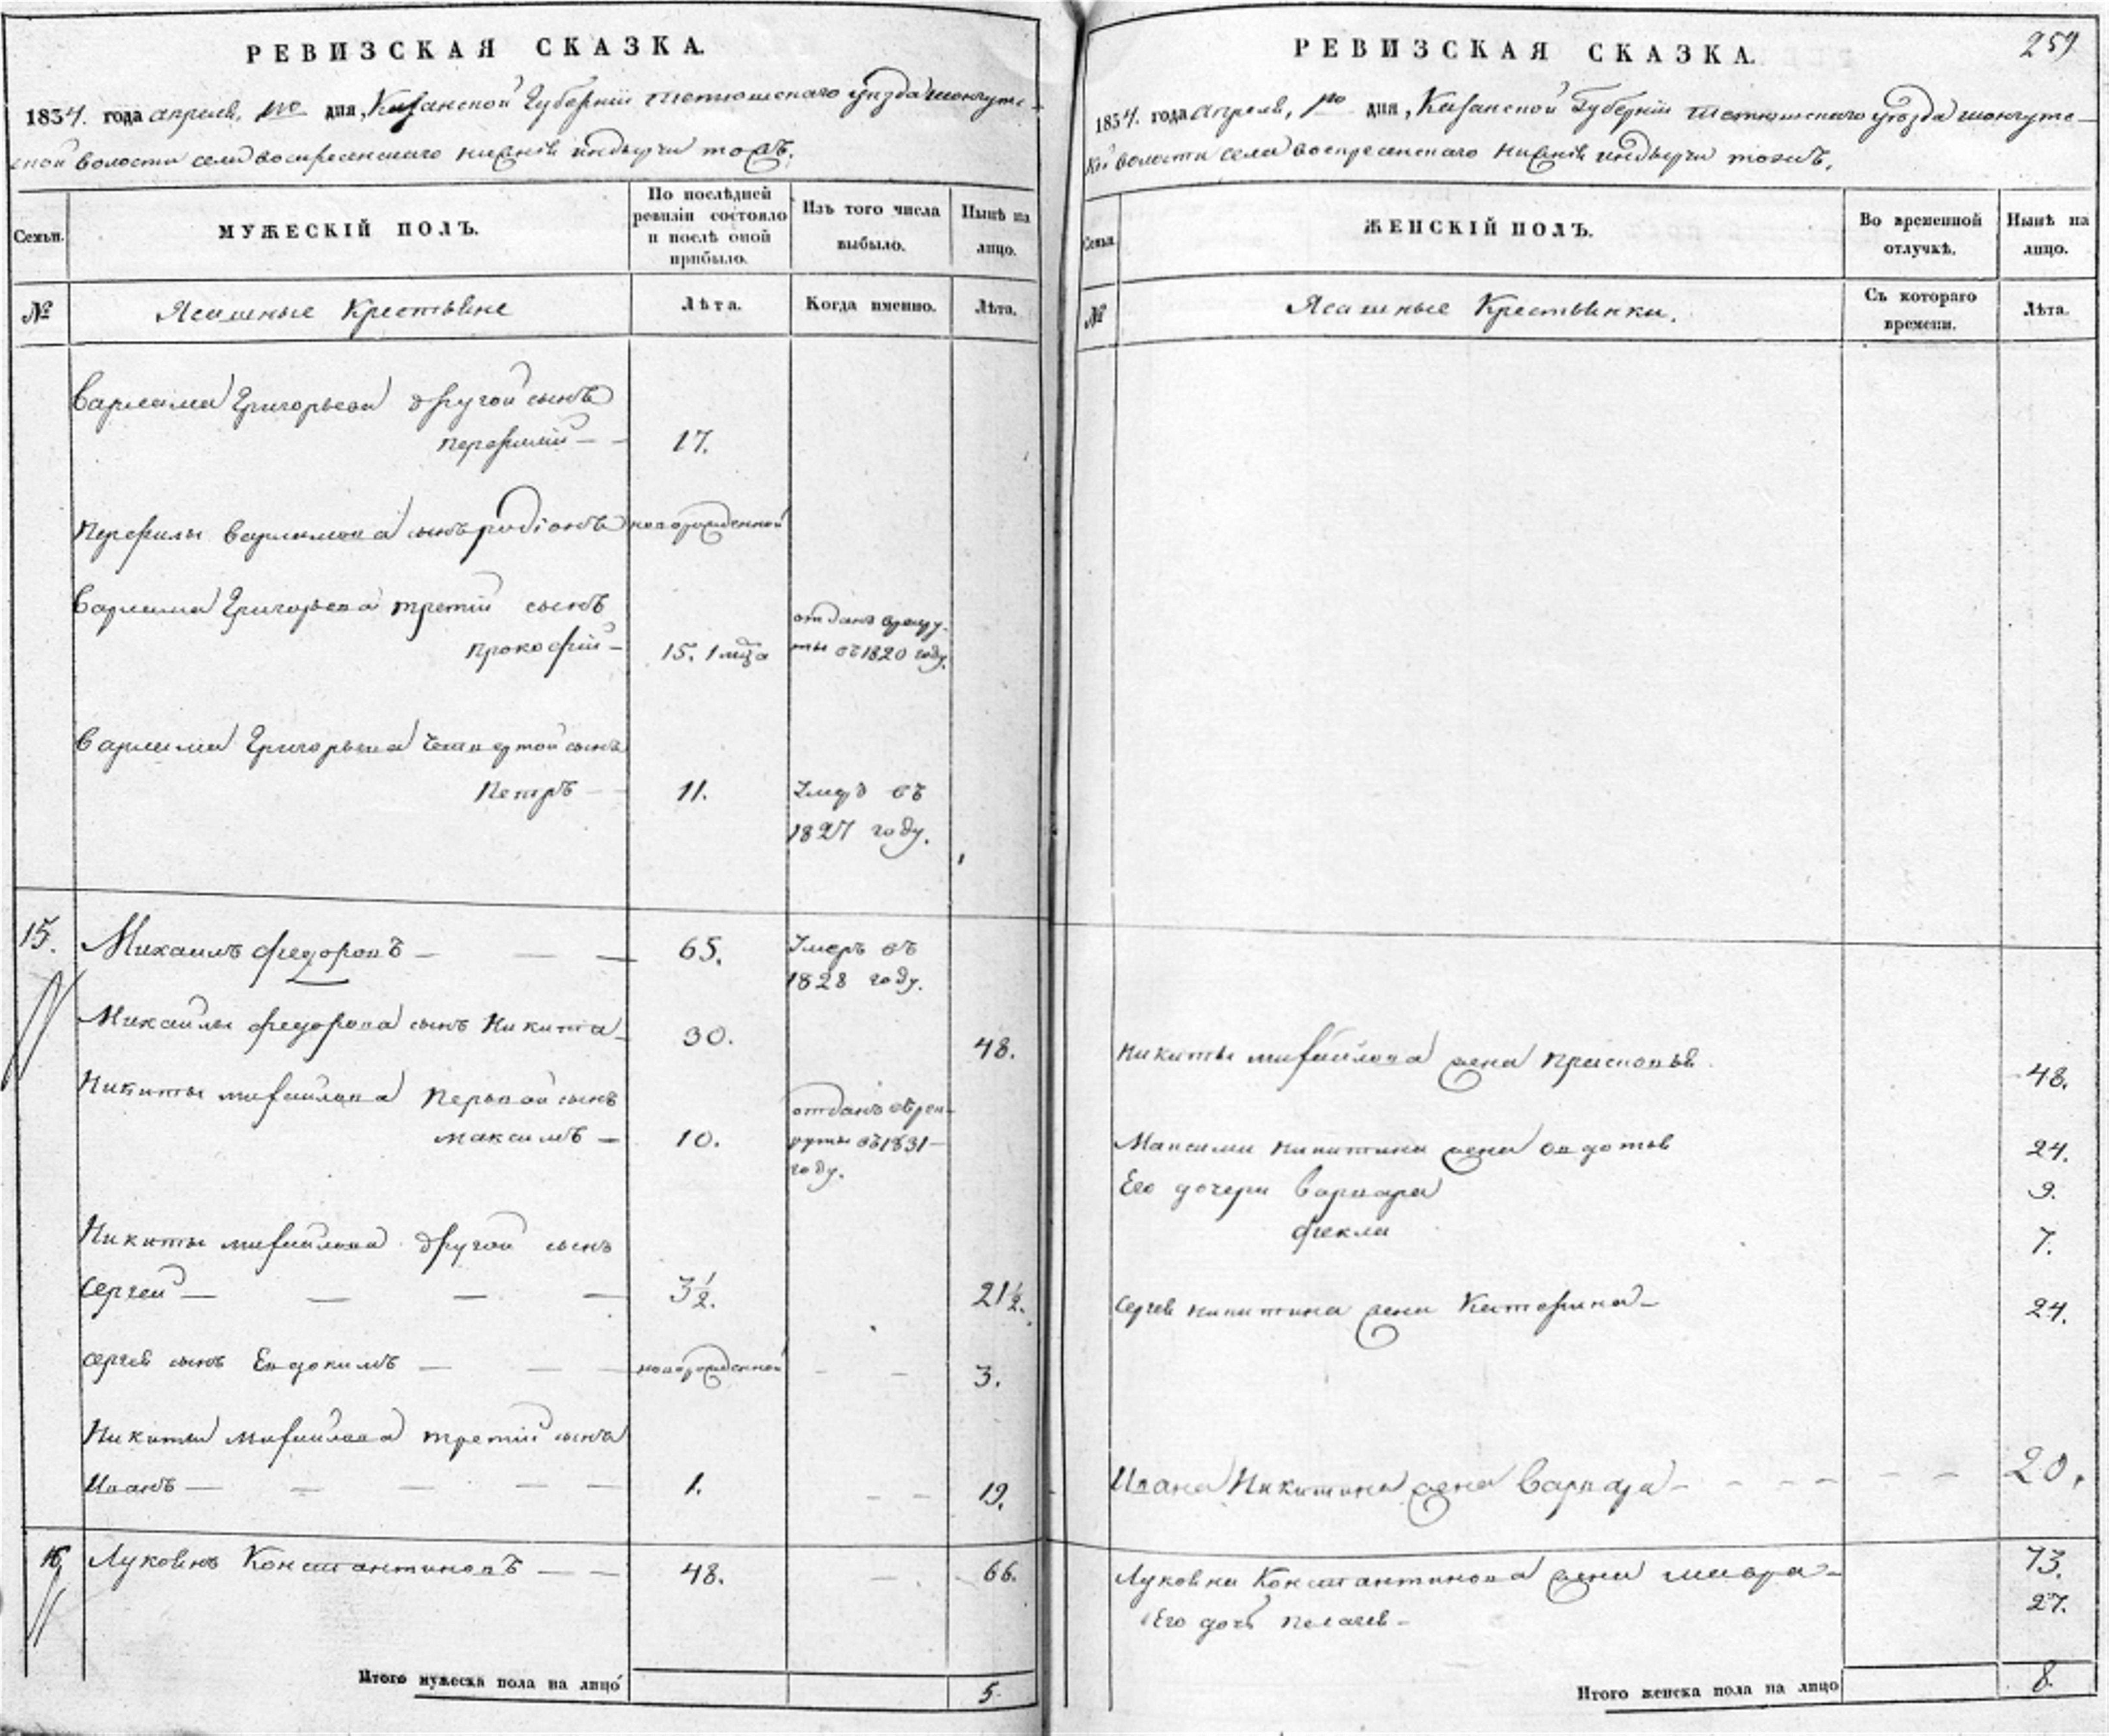 РЕВИЗСКАЯ СКАЗКА.
1834. года апреля, дня, Казанской Губернии тетюшскаго уезда шонгутс-
ской волости села воскресенскаго нижнiя индырчи тожъ.
Семьи.
МУЖЕСКIЙ ПОЛЪ.
По послѣдней ревизiи состояло и послѣ оной прибыло.
Изъ того числа выбыло.
Нынѣ на лицо.
№
Ясашные Крестьяне
Лѣта.
Когда именно.
Лѣта.
Варлама Григорьева другой сынъ
Перфилiй — - 17.
Перфилы Варламова сынъ родiонъ новорожденной
Варлама Григорьева третiй сынъ
прокофiй - 15. 1 мца отданъ врекру-
ты въ 1820 году.
Варлама Григорьева четвертой сынъ
Петръ - 11. Умеръ въ
1827 году.
15. Михаилъ федоровъ - — — 65. Умеръ въ
1828 году.
Михаилы федорова сынъ Никита 30. 48.
Никиты михайлова Первой сынъ
максимъ — 10. отданъ врек-
руты въ 1831-
году.
Никиты михайлова другой сынъ
Сергей — — — — 3 1/2. 21 1/2.
Сергея сынъ Евдокимъ — — новорожденной - - 3.
Никиты михайлова третiй сынъ
Иванъ — — — — — 1. - - 19.
16 Луковнъ Константиновъ — — 48. - 66.
Итого мужеска пола на лицо 5.
РЕВИЗСКАЯ СКАЗКА. 259
1834. года апреля, дня, Казанской Губернiи тетюшскаго уезда шонгутс-
кой волости села воскресенскаго нижнiя индырчи тожъ.
Семьи.
ЖЕНСКIЙ ПОЛЪ.
Во временной отлучкѣ.
Нынѣ на лицо.
№
Ясашные Крестьянки.
Съ котораго времени.
Лѣта.
Никиты михайлова жена прасковья 48.
Максима никитина жена овдотья 24.
Его дочери Варвара 9.
фекла 7.
Сергея никитина жена Катерина — 24.
Ивана Никитина жена Варвара - - - - - - 20.
Луковна Константинова жена мавра - 73.
Его дочь пелагея - 27.
Итого женска пола на лицо 8.